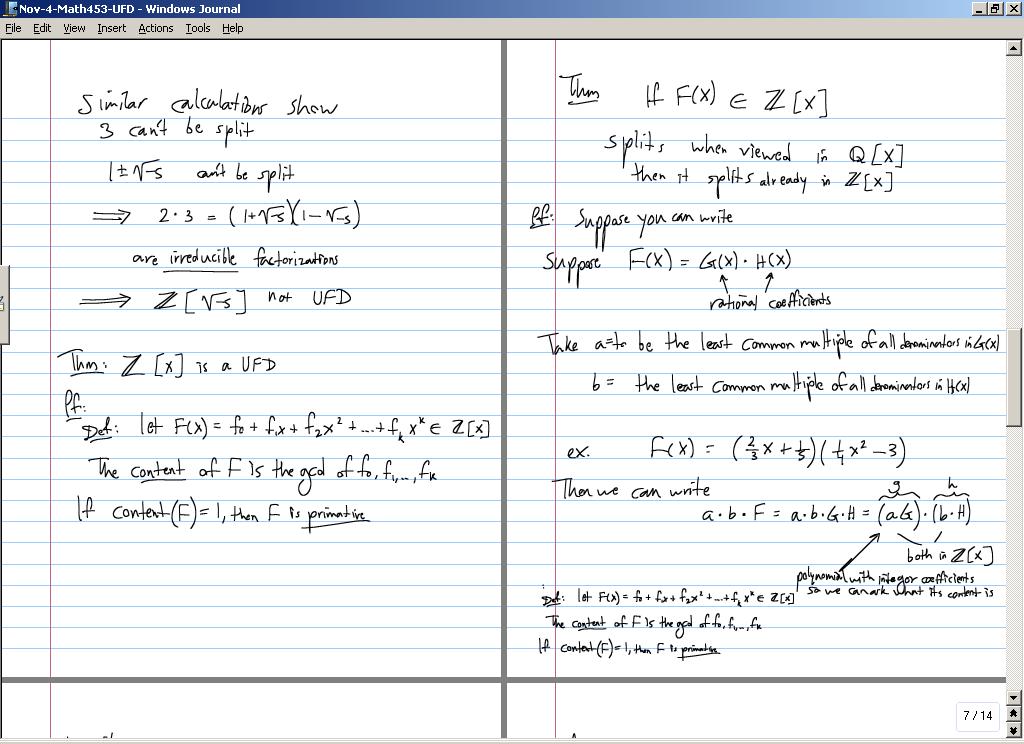 Nov-4-Math453-UFD - Windows Journal
File Edit View Insert Actions Tools Help
Similar calculations show
3 can't be split
1 ± √-5 can't be split
⟹ 2·3 = (1+√-5)(1-√-5)
are irreducible factorizations
⟹ ℤ[√-5] not UFD
Thm: ℤ[x] is a UFD
Pf:
Def: let F(x) = f₀ + f₁x + f₂x² + ... + fₖxᵏ ∈ ℤ[x]
The content of F is the gcd of f₀, f₁, ..., fₖ
If content(F) = 1, then F is primative
Thm If F(x) ∈ ℤ[x]
splits when viewed in ℚ[x]
then it splits already in ℤ[x]
Pf: Suppose you can write
Suppose F(x) = G(x)·H(x)
rational coefficients
Take a = to be the least common multiple of all denominators in G(x)
b = the least common multiple of all denominators in H(x)
ex. F(x) = (2/3 x + 1/5)(1/4 x² - 3)
Then we can write
g h
a·b·F = a·b·G·H = (aG)·(b·H)
both in ℤ[x]
polynomial with integer coefficients
so we can ask what its content is
Def: let F(x) = f₀ + f₁x + f₂x² + ... + fₖxᵏ ∈ ℤ[x]
The content of F is the gcd of f₀, f₁, ..., fₖ
If content(F) = 1, then F is primative
7 / 14